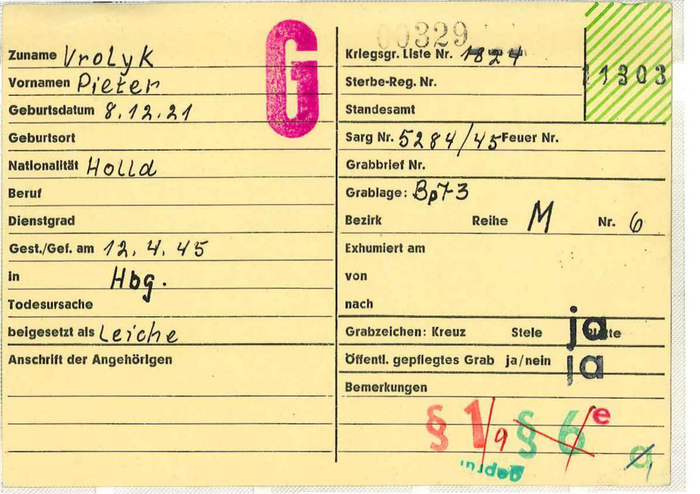 Zuname Vrolyk
Vornamen Pieter
Geburtsdatum 8.12.21
Geburtsort
Nationalität Holld
Beruf
Dienstgrad
Gest./Gef. am 12.4.45
in Hbg.
Todesursache
beigesetzt als Leiche
Anschrift der Angehörigen
G
00329
Kriegsgr. Liste Nr. 1824
11303
Sterbe-Reg. Nr.
Standesamt
Sarg Nr. 5284/45 Feuer Nr.
Grabbrief Nr.
Grablage: Bp73
Bezirk Reihe M Nr. 6
Exhumiert am
von
nach
Grabzeichen: Kreuz Stele Platte ja
Öffentl. gepflegtes Grab ja/nein ja
Bemerkungen
§ 1/9 § 6 e
geprüft